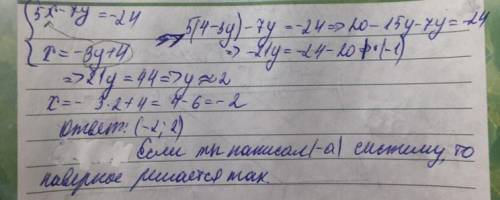 {5x-7y=-24
5(4-3y)-7y=-24=>20-15y-7y=-24
x=-3y+4
=> -21y=-24-20 |·(-1)
=>21y=44=>y≈2
x=- 3·2+4=4-6=-2
Ответ: (-2; 2)
Если ты написал(-а) систему, то
наверное решается так.